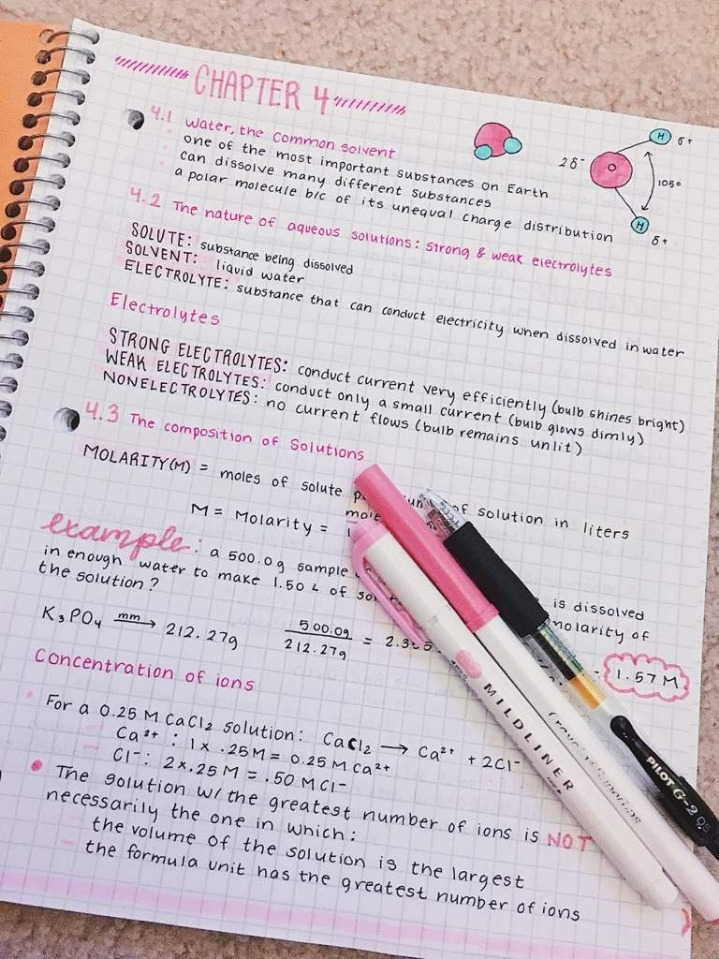 CHAPTER 4
4.1 Water, the common solvent
one of the most important substances on Earth
can dissolve many different substances
a polar molecule b/c of its unequal charge distribution
H δ+
2δ-
105°
H
δ+
4.2 The nature of aqueous solutions: strong & weak electrolytes
SOLUTE: substance being dissolved
SOLVENT: liquid water
ELECTROLYTE: substance that can conduct electricity when dissolved in water
Electrolytes
STRONG ELECTROLYTES: conduct current very efficiently (bulb shines bright)
WEAK ELECTROLYTES: conduct only a small current (bulb glows dimly)
NONELECTROLYTES: no current flows (bulb remains unlit)
4.3 The composition of solutions
MOLARITY(M) = moles of solute of solution in liters
M = Molarity =
example: a 500.0g sample is dissolved
in enough water to make 1.50 L of molarity of
the solution?
K3PO4 mm → 212.27g
500.0g
212.27g
= 1.57 M
Concentration of ions
For a 0.25 M CaCl2 solution: CaCl2 → Ca2+ + 2Cl-
Ca2+: 1x .25M = 0.25 M Ca2+
Cl-: 2x.25 M = .50 M Cl-
The solution w/ the greatest number of ions is NOT
necessarily the one in which:
the volume of the solution is the largest
the formula unit has the greatest number of ions
MILDLINER
PILOT G-2